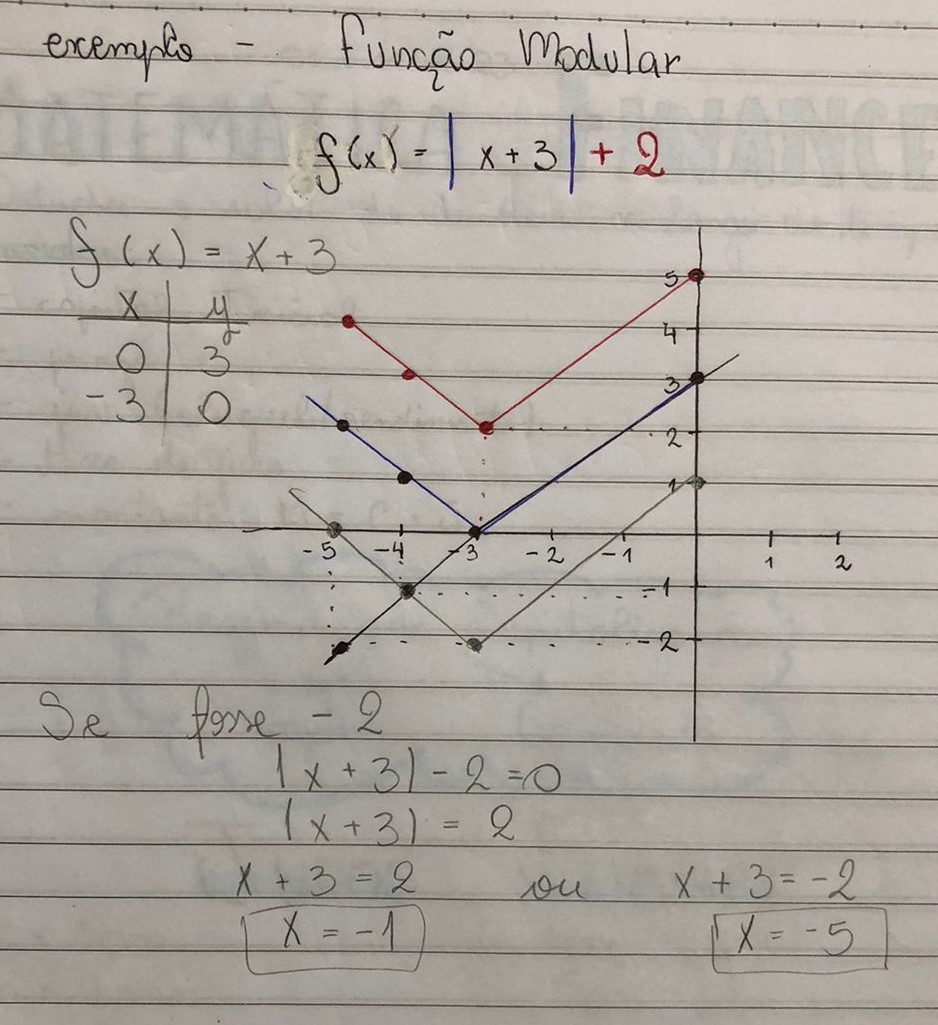 exemplo - Função Modular
f(x) = | x + 3 | + 2
f (x) = x + 3
x | y
0 | 3
-3 | 0
5
4
3
2
1
-5 -4 -3 -2 -1 1 2
-1
-2
Se fosse - 2
|x + 3| - 2 = 0
|x + 3| = 2
x + 3 = 2 ou x + 3 = -2
x = -1 x = -5